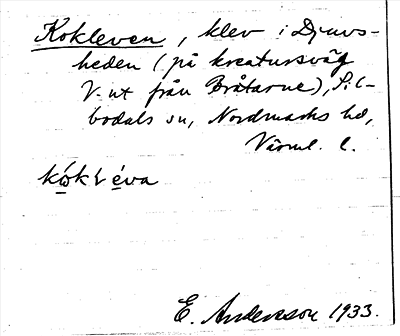 Kokleven, klev i Djuvs-
heden (på kreatursväg
V. ut från Bråtarne), Sil-
bodals sn, Nordmarks hd,
Värml. l.
kókléva
E. Andersson 1933.